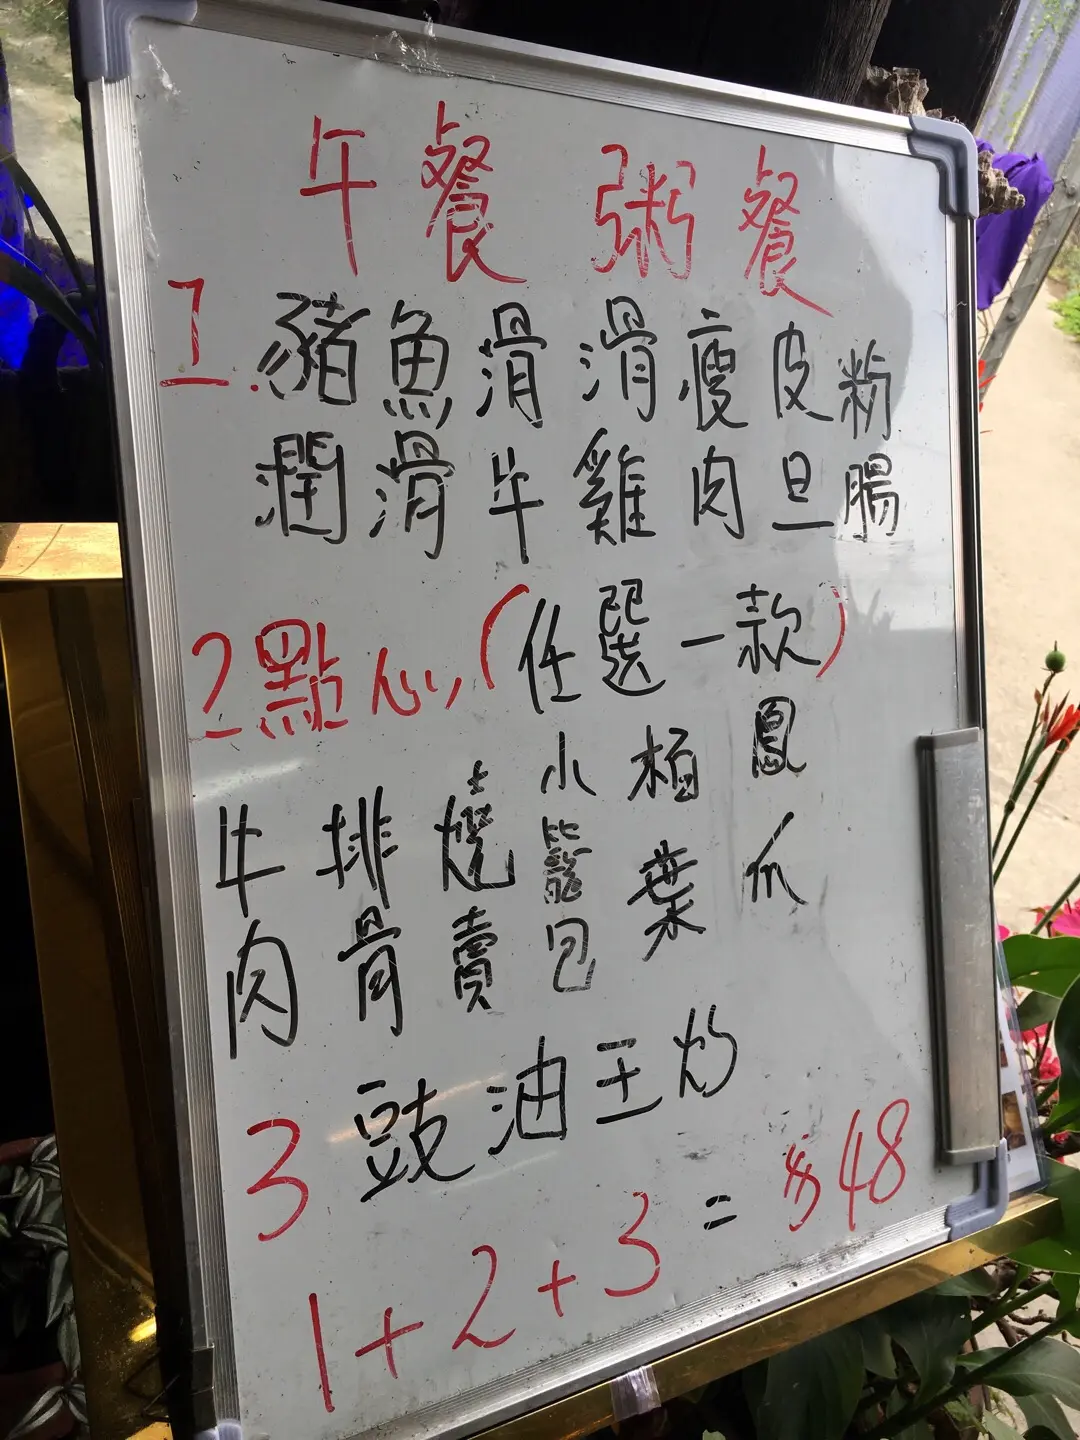 午餐 粥餐
1.
豬潤
魚滑
滑牛
滑雞
瘦肉
皮旦
粉腸
2點心(任選一款)
牛肉
排骨
燒賣
小籠包
栢葉
鳳爪
3 豉油王炒
1+2+3=$48